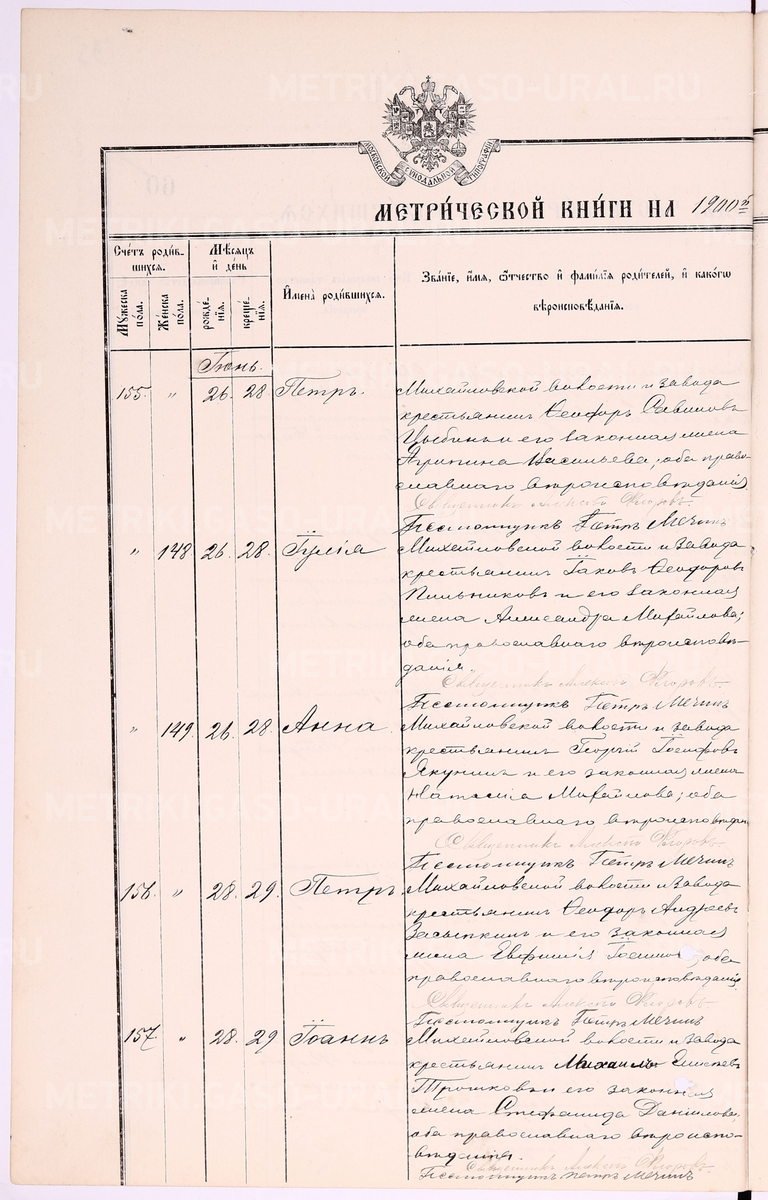 МОСКОВСКОЙ СѴНОДАЛЬНОЙ ТИПОГРАФІИ
МЕТРИ́ЧЕСКОЙ КНИ́ГИ НА 1900й
Сче́тъ роди́в-
шихся.
Мꙋжеска
по́ла.
Же́нска
по́ла.
Мѣ́сяцъ
и҆ де́нь
рожде́-
нїѧ.
креще́-
нїѧ.
И҆мена̀ роди́вшихся.
Зва́нїе, и҆́мѧ, ѻ҆́тчество и҆ фами́лїѧ роди́телей, и҆ како́гѡ
вѣроисповѣ́данїѧ.
Іюнь.
155. " 26. 28 Петръ.
Михайловской волости и завода
крестьянинъ Ѳеодоръ Саввиновъ
Цыбинъ и его законная жена
Агрипина Васильева; оба право-
славнаго вѣроисповѣданія.
Священникъ Алексѣй Флоровъ.
Псаломщикъ Петръ Мечинъ
" 148 26. 28. Іулія
Михайловской волости и завода
крестьянинъ Іаковъ Ѳеодоровъ
Пильниковъ и его законная
жена Александра Михайлова;
оба православнаго вѣроисповѣ-
данія.
Священникъ Алексѣй Флоровъ.
Псаломщикъ Петръ Мечинъ
" 149. 26. 28. Анна
Михайловской волости и завода
крестьянинъ Георгій Іосифовъ
Якунинъ и его законная жена
Наталія Михайлова; оба
православнаго вѣроисповѣдан.
Священникъ Алексѣй Флоровъ.
Псаломщикъ Петръ Мечинъ
156. " 28. 29. Петръ
Михайловской волости и завода
крестьянинъ Ѳеодоръ Андреевъ
Засыпкинъ и его законная
жена Евфимія оба
православнаго вѣроисповѣданія
Священникъ Алексѣй Флоровъ
Псаломщикъ Петръ Мечинъ
157. " 28. 29 Іоаннъ
Михайловской волости и завода
крестьянинъ Михаилъ Елисѣевъ
Трошковъ и его законная
жена Стефанида Данилова;
оба православнаго вѣроиспо-
вѣданія.
Священникъ Алексѣй Флоровъ.
Псаломщикъ Петръ Мечинъ
METRIKI.GASO-URAL.RU